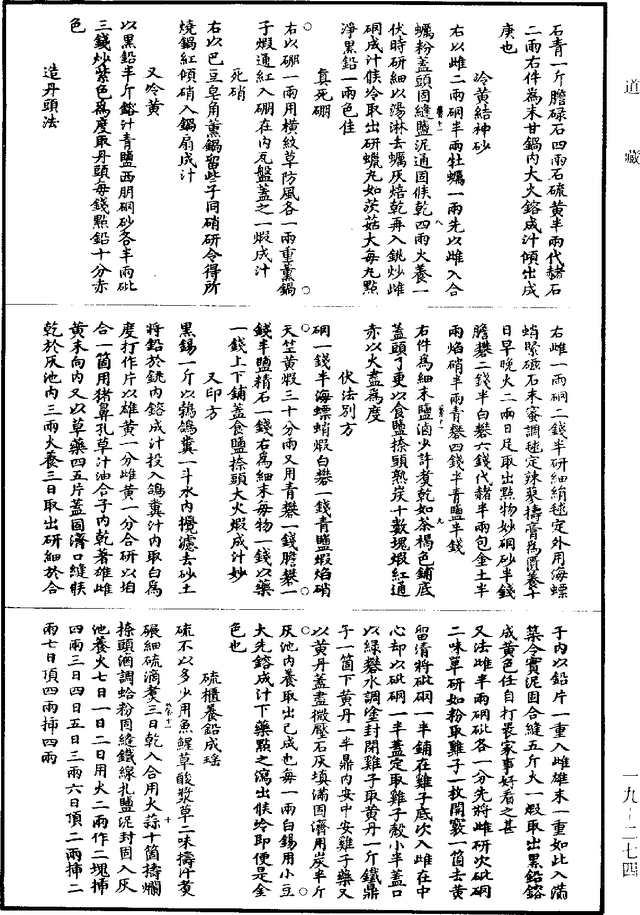 道藏
石青一斤膽碌石四兩石硫黄半兩代赭石
二兩右件為末甘鍋内大火鎔成汁傾出成
庚也
冷黄結神砂
右以雌二兩硇半兩牡蠣一兩先以雌入合
蠣粉蓋頭固縫鹽泥通固候乾四兩火養一
伏時研細以湯淋去蠣灰焙乾再入銚炒雌
硇成汁候冷取出研蠟丸如茨菇大每丸點
淨黑鉛一兩色佳
真死硼
右以硼一兩用横紋草防風各一兩重薰鍋
子煅通紅入硼在内瓦盤蓋之一煅成汁
死硝
右以巴豆皂角薰鍋留些子同硝研令得所
燒鍋紅傾硝入鍋扇成汁
又冷黄
以黑鉛半斤鎔汁青鹽西朋硇砂各半兩砒
三錢炒紫色為度取丹頭每錢點鉛十分赤
色
造丹頭法
右雌一兩硇二錢半研細絹毬定外用海螵
蛸緊磁石末蜜調毬定辣蓼擣膏為匱養十
日早晚火二兩日足取出點物妙硇砂半錢
膽礬二錢半白礬六錢代赭半兩包金土半
兩焰硝半兩青礬四錢半青鹽半錢
右件為細末鹽滷少許煑乾如茶褐色鋪底
蓋頭了更以食鹽捺頭熟炭十數塊煅紅通
赤以火盡為度
伏法别方
硇一錢半海螵蛸煅白礬一錢青鹽煅焰硝
天笁黄煅三十分兩又用青礬一錢膽礬一
錢半鹽精石一錢右為細末每物一錢以藥
一錢上下鋪蓋食鹽捺頭大火煅成汁妙
又印方
黑錫一斤以鵓鴿糞一斗水内攪濾去砂土
將鉛於銚内鎔成汁投入鴿糞汁内取白為
度打作片以雄黄一分雌黄一分合研以坩
合一箇用猪鼻孔草汁油合子内乾著雄雌
黄末向内又以草藥四五片蓋固濟口縫候
乾於灰池内三兩火養三日取出研細於合
子内以鉛片一重入雌雄末一重如此入滿
築令實泥固合縫五斤火一煅取出黑鉛鎔
成黄色任自打畏家事好看之甚
又法雌半兩硇砒各一分先將雌研次砒硇
二味草研如粉取雞子一枚開竅一箇去黄
留清將砒硇一半鋪在雞子底次入雌在中
心却以砒硇一半蓋定取雞子殼小半蓋口
以緑礬水調塗封開雞子取黄丹一斤鐵鼎
子一箇下黄丹一半鼎内安中安雞子藥又
以黄丹蓋盡微壓石灰填滿固濟用炭半斤
灰池内養取出已成也每一兩白錫用小豆
大先鎔成汁下藥點之瀉出候冷即便是金
色也
硫櫃養鉛成瑶
硫不以多少用魚鯹草酸漿草二味擣汁煑
碾細硫滴煑三日乾入合用火蒜十箇擣爛
捺頭酒調蛤粉固縫鐵線扎鹽泥封固入灰
池養火七日一日二日用火二兩作二塊挿
四兩三日四日五日三兩六日頂二兩挿二
兩七日頂四兩挿四兩
一九-二七四